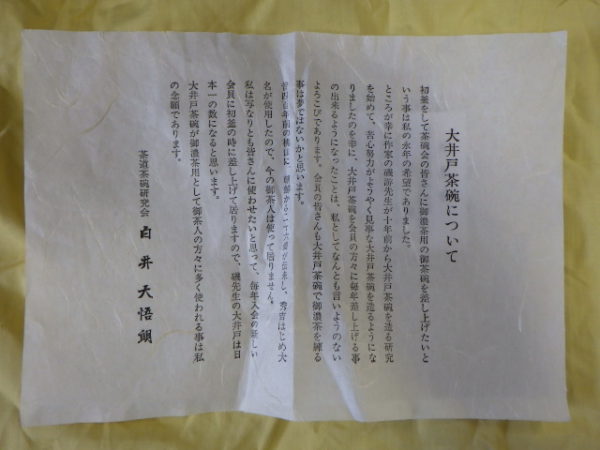 大井戸茶碗について
初釜をして茶碗会の皆さんに御濃茶用の御茶碗を差し上げたいと
いう事は私の永年の希望でありました。
ところが幸に作家の磯游先生が十年前から大井戸茶碗を造る研究
を始めて、苦心努力がようやく見事な大井戸茶碗を造るようにな
りましたのを幸に、大井戸茶碗を会員の方々に毎年差し上げる事
の出来るようになったことは、私としてなんとも言いようのない
よろこびであります。会員の皆さんも大井戸茶碗で御濃茶を練る
事は夢ではないかと思います。
昔四百年前の桃山に朝鮮から 来し、秀吉はじめ大
名が使用したので、今の御茶人は使って居りません。
私は写なりとも皆さんに使わせたいと思って、毎年入会の新しい
会員に初釜の時に差し上げて居りますので、磯先生の大井戸は日
本一の数になると思います。
大井戸茶碗が御濃茶用として御茶人の方々に多く使われる事は私
の念願であります。
茶道茶碗研究会
白井天悟朗